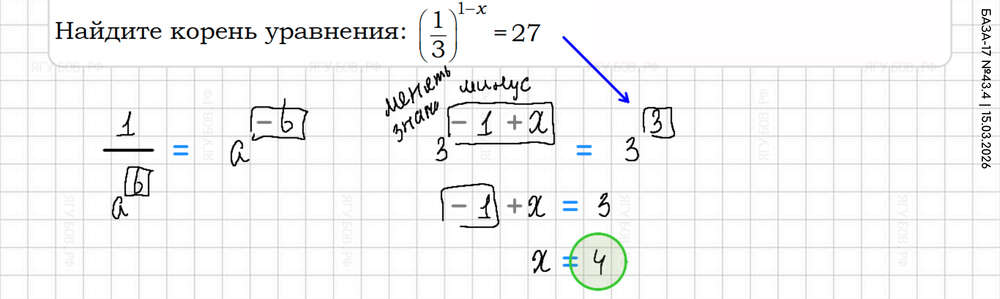 Найдите корень уравнения: (1/3)^(1−x) = 27
менять знак
минус
1/a^b = a^(−b)
3^(−1+x) = 3^3
−1 + x = 3
x = 4
БАЗА-17 №43.4 | 15.03.2026